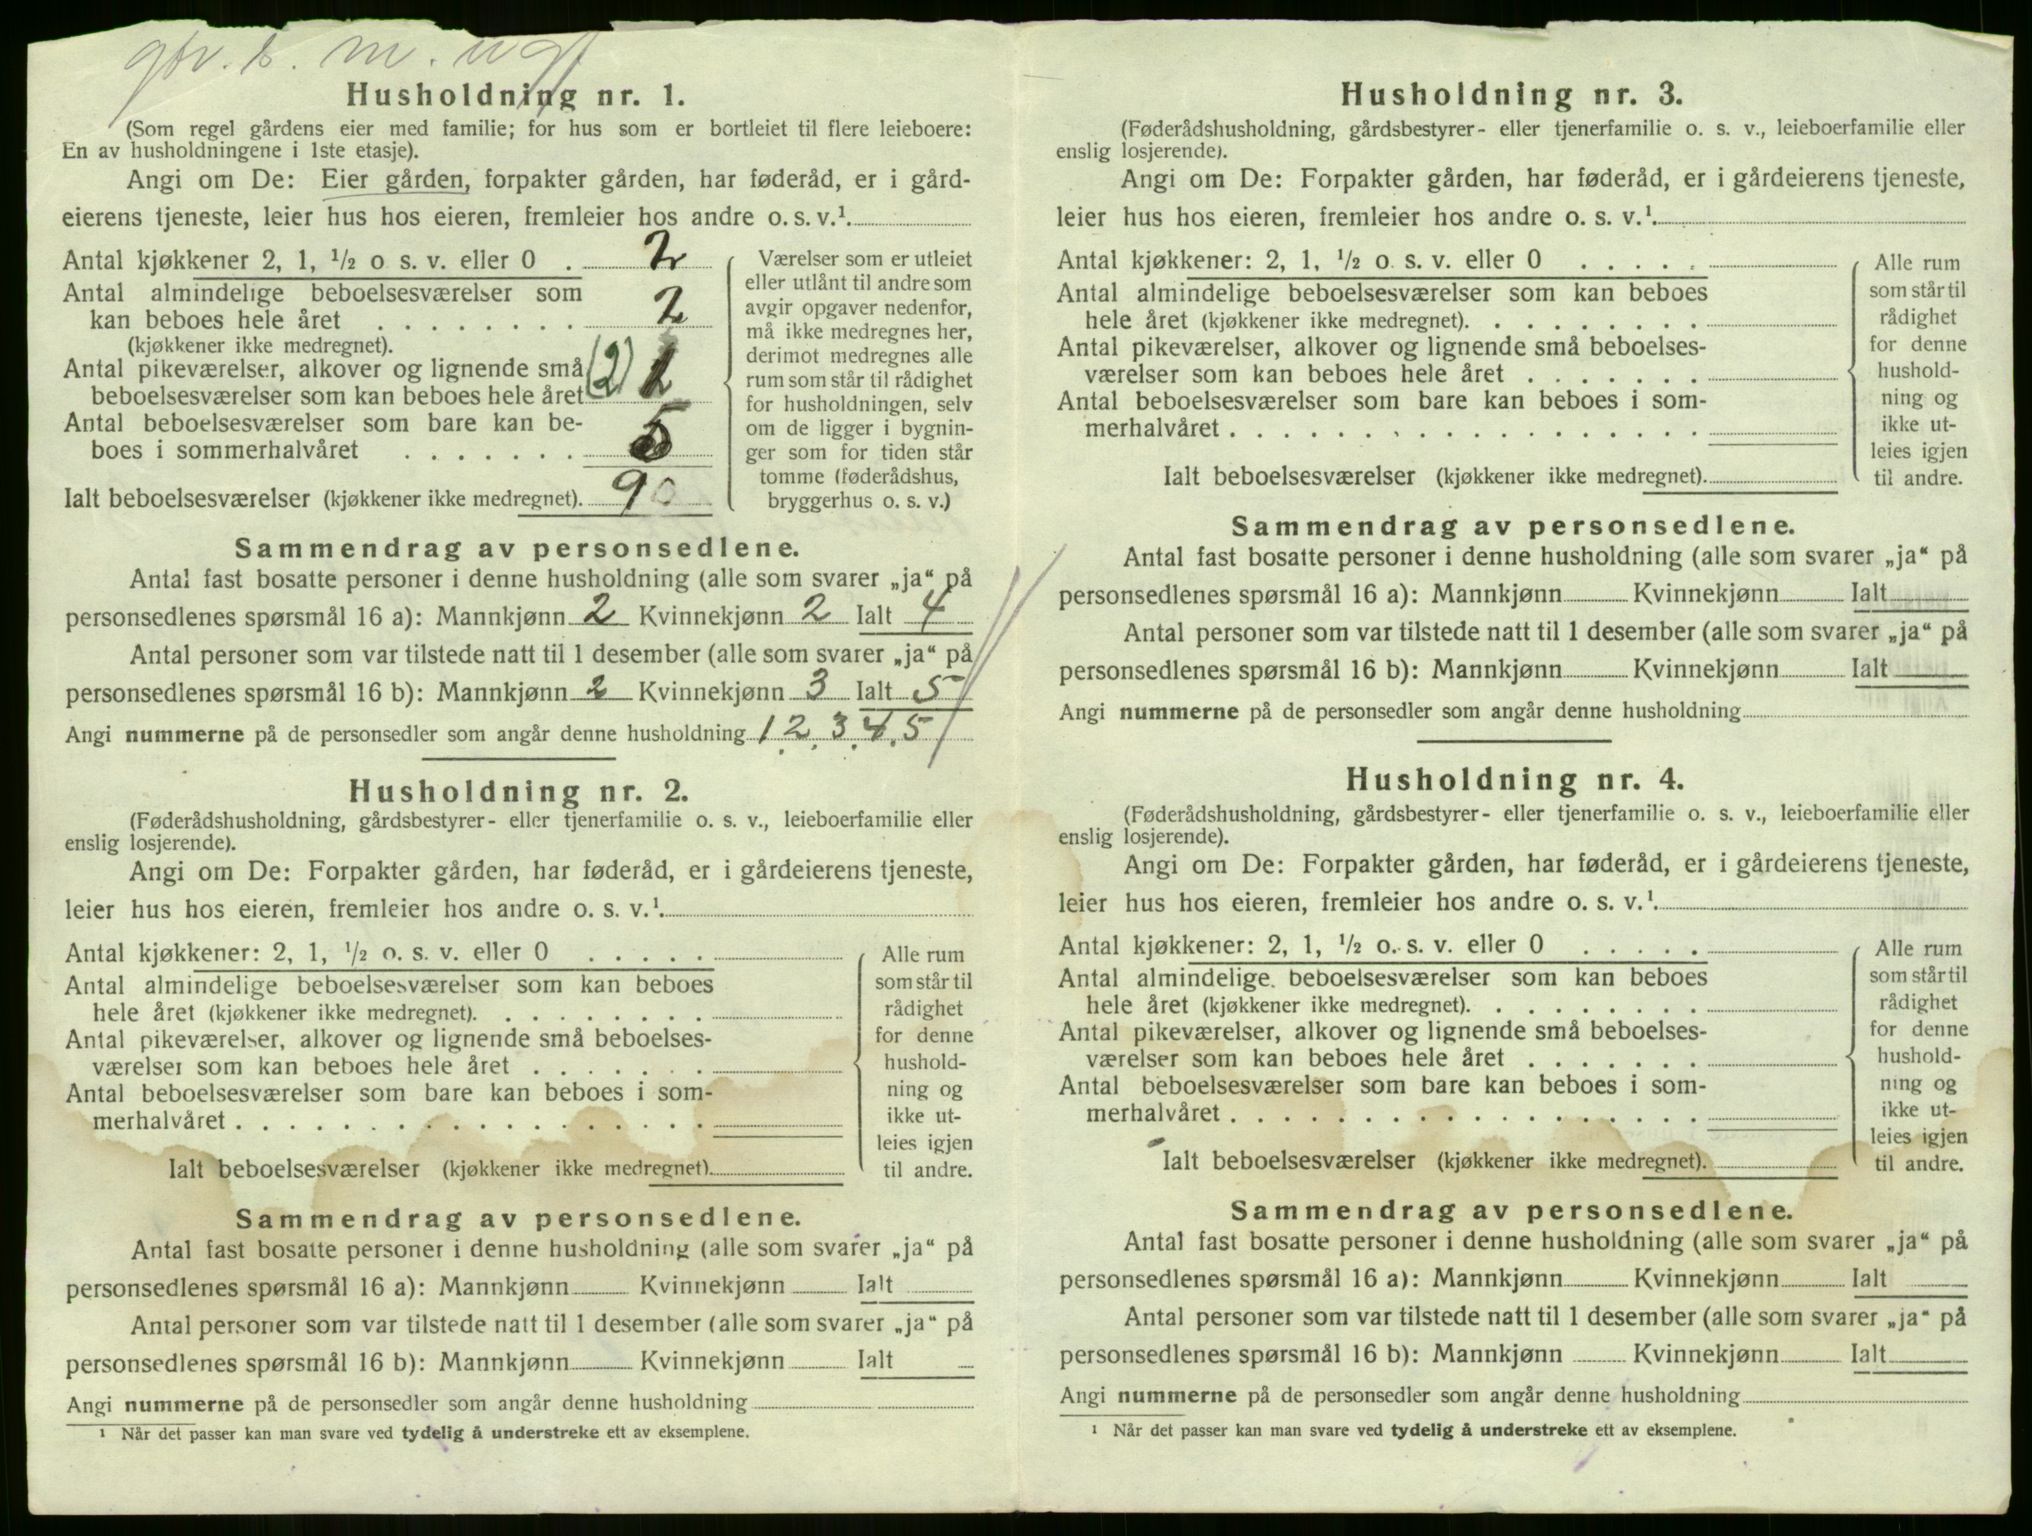 gbr. b. m. ugf
Husholdning nr. 1.
(Som regel gårdens eier med familie; for hus som er bortleiet til flere leieboere:
En av husholdningene i 1ste etasje).
Angi om De: Eier gården, forpakter gården, har føderåd, er i gård-
eierens tjeneste, leier hus hos eieren, fremleier hos andre o. s. v.¹
Antal kjøkkener 2, 1, ½ o s. v. eller 0 . 2
Antal almindelige beboelsesværelser som
kan beboes hele året . . . . . . . . 2
(kjøkkener ikke medregnet).
Antal pikeværelser, alkover og lignende små
beboelsesværelser som kan beboes hele året (2)
Antal beboelsesværelser som bare kan be-
boes i sommerhalvåret . . . . . . . 5
Ialt beboelsesværelser (kjøkkener ikke medregnet). 9
Værelser som er utleiet
eller utlånt til andre som
avgir opgaver nedenfor,
må ikke medregnes her,
derimot medregnes alle
rum som står til rådighet
for husholdningen, selv
om de ligger i bygnin-
ger som for tiden står
tomme (føderådshus,
bryggerhus o. s. v.)
Sammendrag av personsedlene.
Antal fast bosatte personer i denne husholdning (alle som svarer „ja“ på
personsedlenes spørsmål 16 a): Mannkjønn 2 Kvinnekjønn 2 Ialt 4
Antal personer som var tilstede natt til 1 desember (alle som svarer „ja“ på
personsedlenes spørsmål 16 b): Mannkjønn 2 Kvinnekjønn 3 Ialt 5
Angi nummerne på de personsedler som angår denne husholdning 1 2, 3, 4, 5
Husholdning nr. 2.
(Føderådshusholdning, gårdsbestyrer- eller tjenerfamilie o. s. v., leieboerfamilie eller
enslig losjerende).
Angi om De: Forpakter gården, har føderåd, er i gårdeierens tjeneste,
leier hus hos eieren, fremleier hos andre o. s. v.¹
Antal kjøkkener: 2, 1, ½ o. s. v. eller 0 . . . . .
Antal almindelige beboelsesværelser som kan beboes
hele året (kjøkkener ikke medregnet). . . . . . . . .
Antal pikeværelser, alkover og lignende små beboelses-
værelser som kan beboes hele året . . . . . . .
Antal beboelsesværelser som bare kan beboes i som-
merhalvåret . . . . . . . . . . . . . . . . . .
Ialt beboelsesværelser (kjøkkener ikke medregnet).
Alle rum
som står til
rådighet
for denne
hushold-
ning og
ikke ut-
leies igjen
til andre.
Sammendrag av personsedlene.
Antal fast bosatte personer i denne husholdning (alle som svarer „ja“ på
personsedlenes spørsmål 16 a): Mannkjønn Kvinnekjønn Ialt
Antal personer som var tilstede natt til 1 desember (alle som svarer „ja“ på
personsedlenes spørsmål 16 b): Mannkjønn Kvinnekjønn Ialt
Angi nummerne på de personsedler som angår denne husholdning
¹ Når det passer kan man svare ved tydelig å understreke ett av eksemplene.
Husholdning nr. 3.
(Føderådshusholdning, gårdsbestyrer- eller tjenerfamilie o. s. v., leieboerfamilie eller
enslig losjerende).
Angi om De: Forpakter gården, har føderåd, er i gårdeierens tjeneste,
leier hus hos eieren, fremleier hos andre o. s. v.¹
Antal kjøkkener: 2, 1, ½ o. s. v. eller 0 . . . . .
Antal almindelige beboelsesværelser som kan beboes
hele året (kjøkkener ikke medregnet). . . . . . . . .
Antal pikeværelser, alkover og lignende små beboelses-
værelser som kan beboes hele året . . . . . . .
Antal beboelsesværelser som bare kan beboes i som-
merhalvåret . . . . . . . . . . . . . . . . . .
Ialt beboelsesværelser (kjøkkener ikke medregnet).
Alle rum
som står til
rådighet
for denne
hushold-
ning og
ikke ut-
leies igjen
til andre.
Sammendrag av personsedlene.
Antal fast bosatte personer i denne husholdning (alle som svarer „ja“ på
personsedlenes spørsmål 16 a): Mannkjønn Kvinnekjønn Ialt
Antal personer som var tilstede natt til 1 desember (alle som svarer „ja“ på
personsedlenes spørsmål 16 b): Mannkjønn Kvinnekjønn Ialt
Angi nummerne på de personsedler som angår denne husholdning
Husholdning nr. 4.
(Føderådshusholdning, gårdsbestyrer- eller tjenerfamilie o. s. v., leieboerfamilie eller
enslig losjerende).
Angi om De: Forpakter gården, har føderåd, er i gårdeierens tjeneste,
leier hus hos eieren, fremleier hos andre o. s. v.¹
Antal kjøkkener: 2, 1, ½ o. s. v. eller 0 . . . . .
Antal almindelige beboelsesværelser som kan beboes
hele året (kjøkkener ikke medregnet). . . . . . . . .
Antal pikeværelser, alkover og lignende små beboelses-
værelser som kan beboes hele året . . . . . . .
Antal beboelsesværelser som bare kan beboes i som-
merhalvåret . . . . . . . . . . . . . . . . . .
Ialt beboelsesværelser (kjøkkener ikke medregnet).
Alle rum
som står til
rådighet
for denne
hushold-
ning og
ikke ut-
leies igjen
til andre.
Sammendrag av personsedlene.
Antal fast bosatte personer i denne husholdning (alle som svarer „ja“ på
personsedlenes spørsmål 16 a): Mannkjønn Kvinnekjønn Ialt
Antal personer som var tilstede natt til 1 desember (alle som svarer „ja“ på
personsedlenes spørsmål 16 b): Mannkjønn Kvinnekjønn Ialt
Angi nummerne på de personsedler som angår denne husholdning
¹ Når det passer kan man svare ved tydelig å understreke ett av eksemplene.